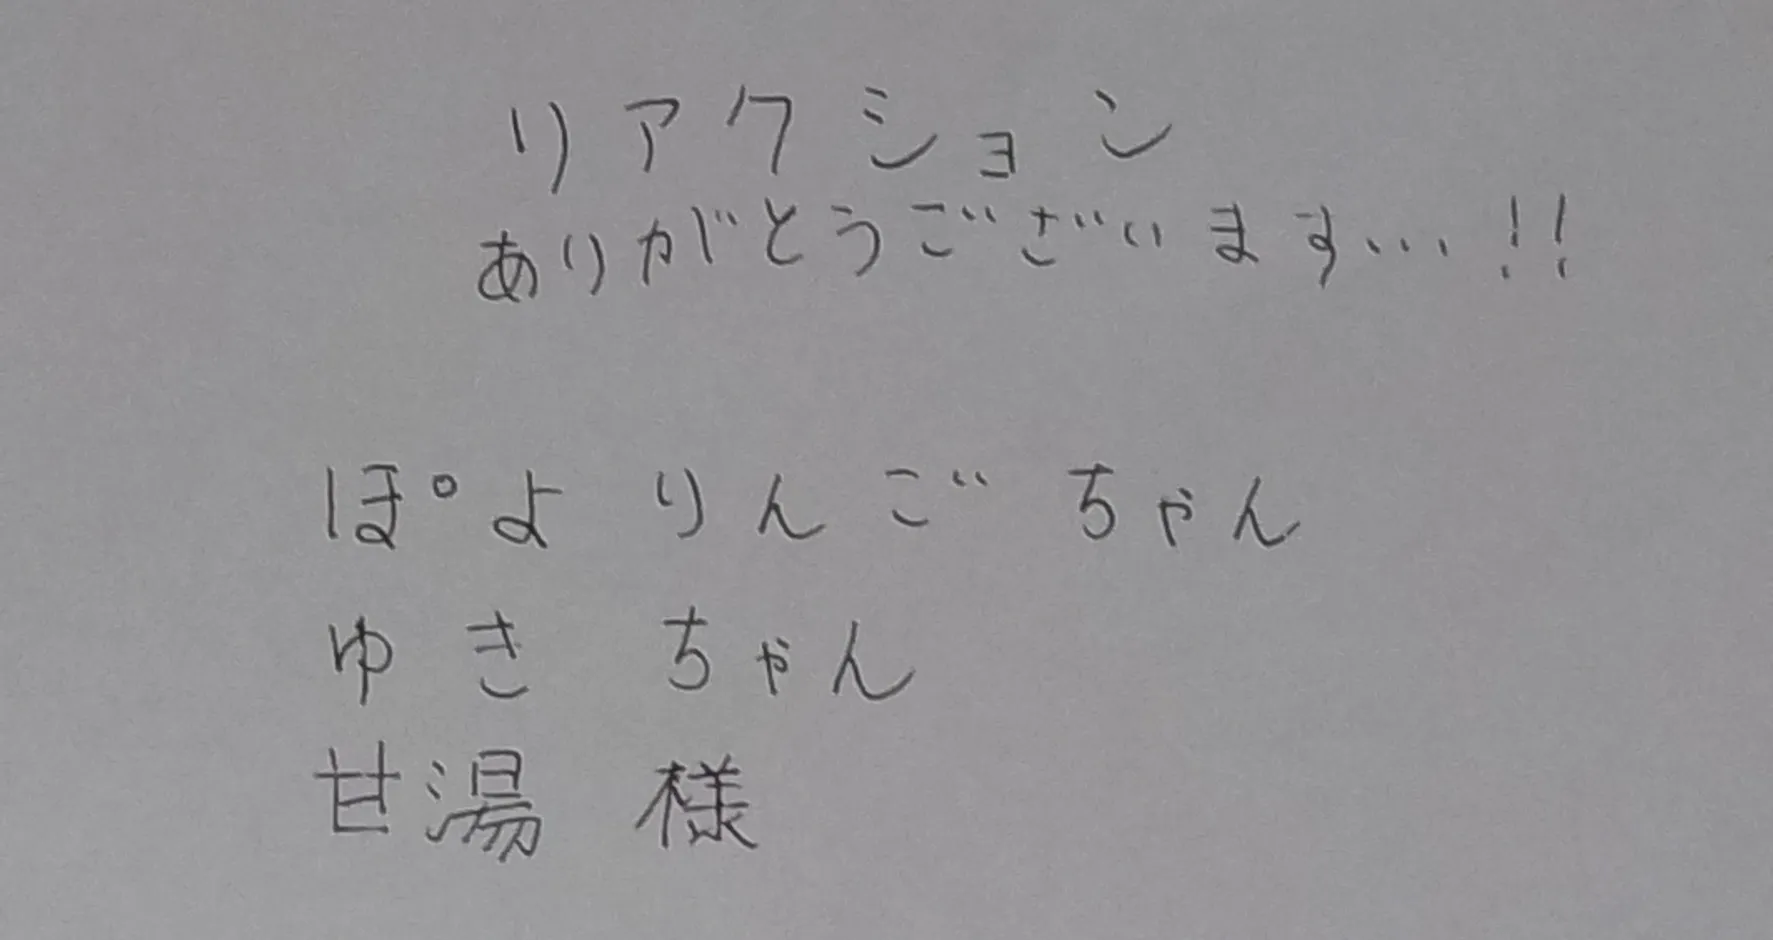 リアクション
ありがとうございます…!!
ぽよりんごちゃん
ゆきちゃん
甘湯 様